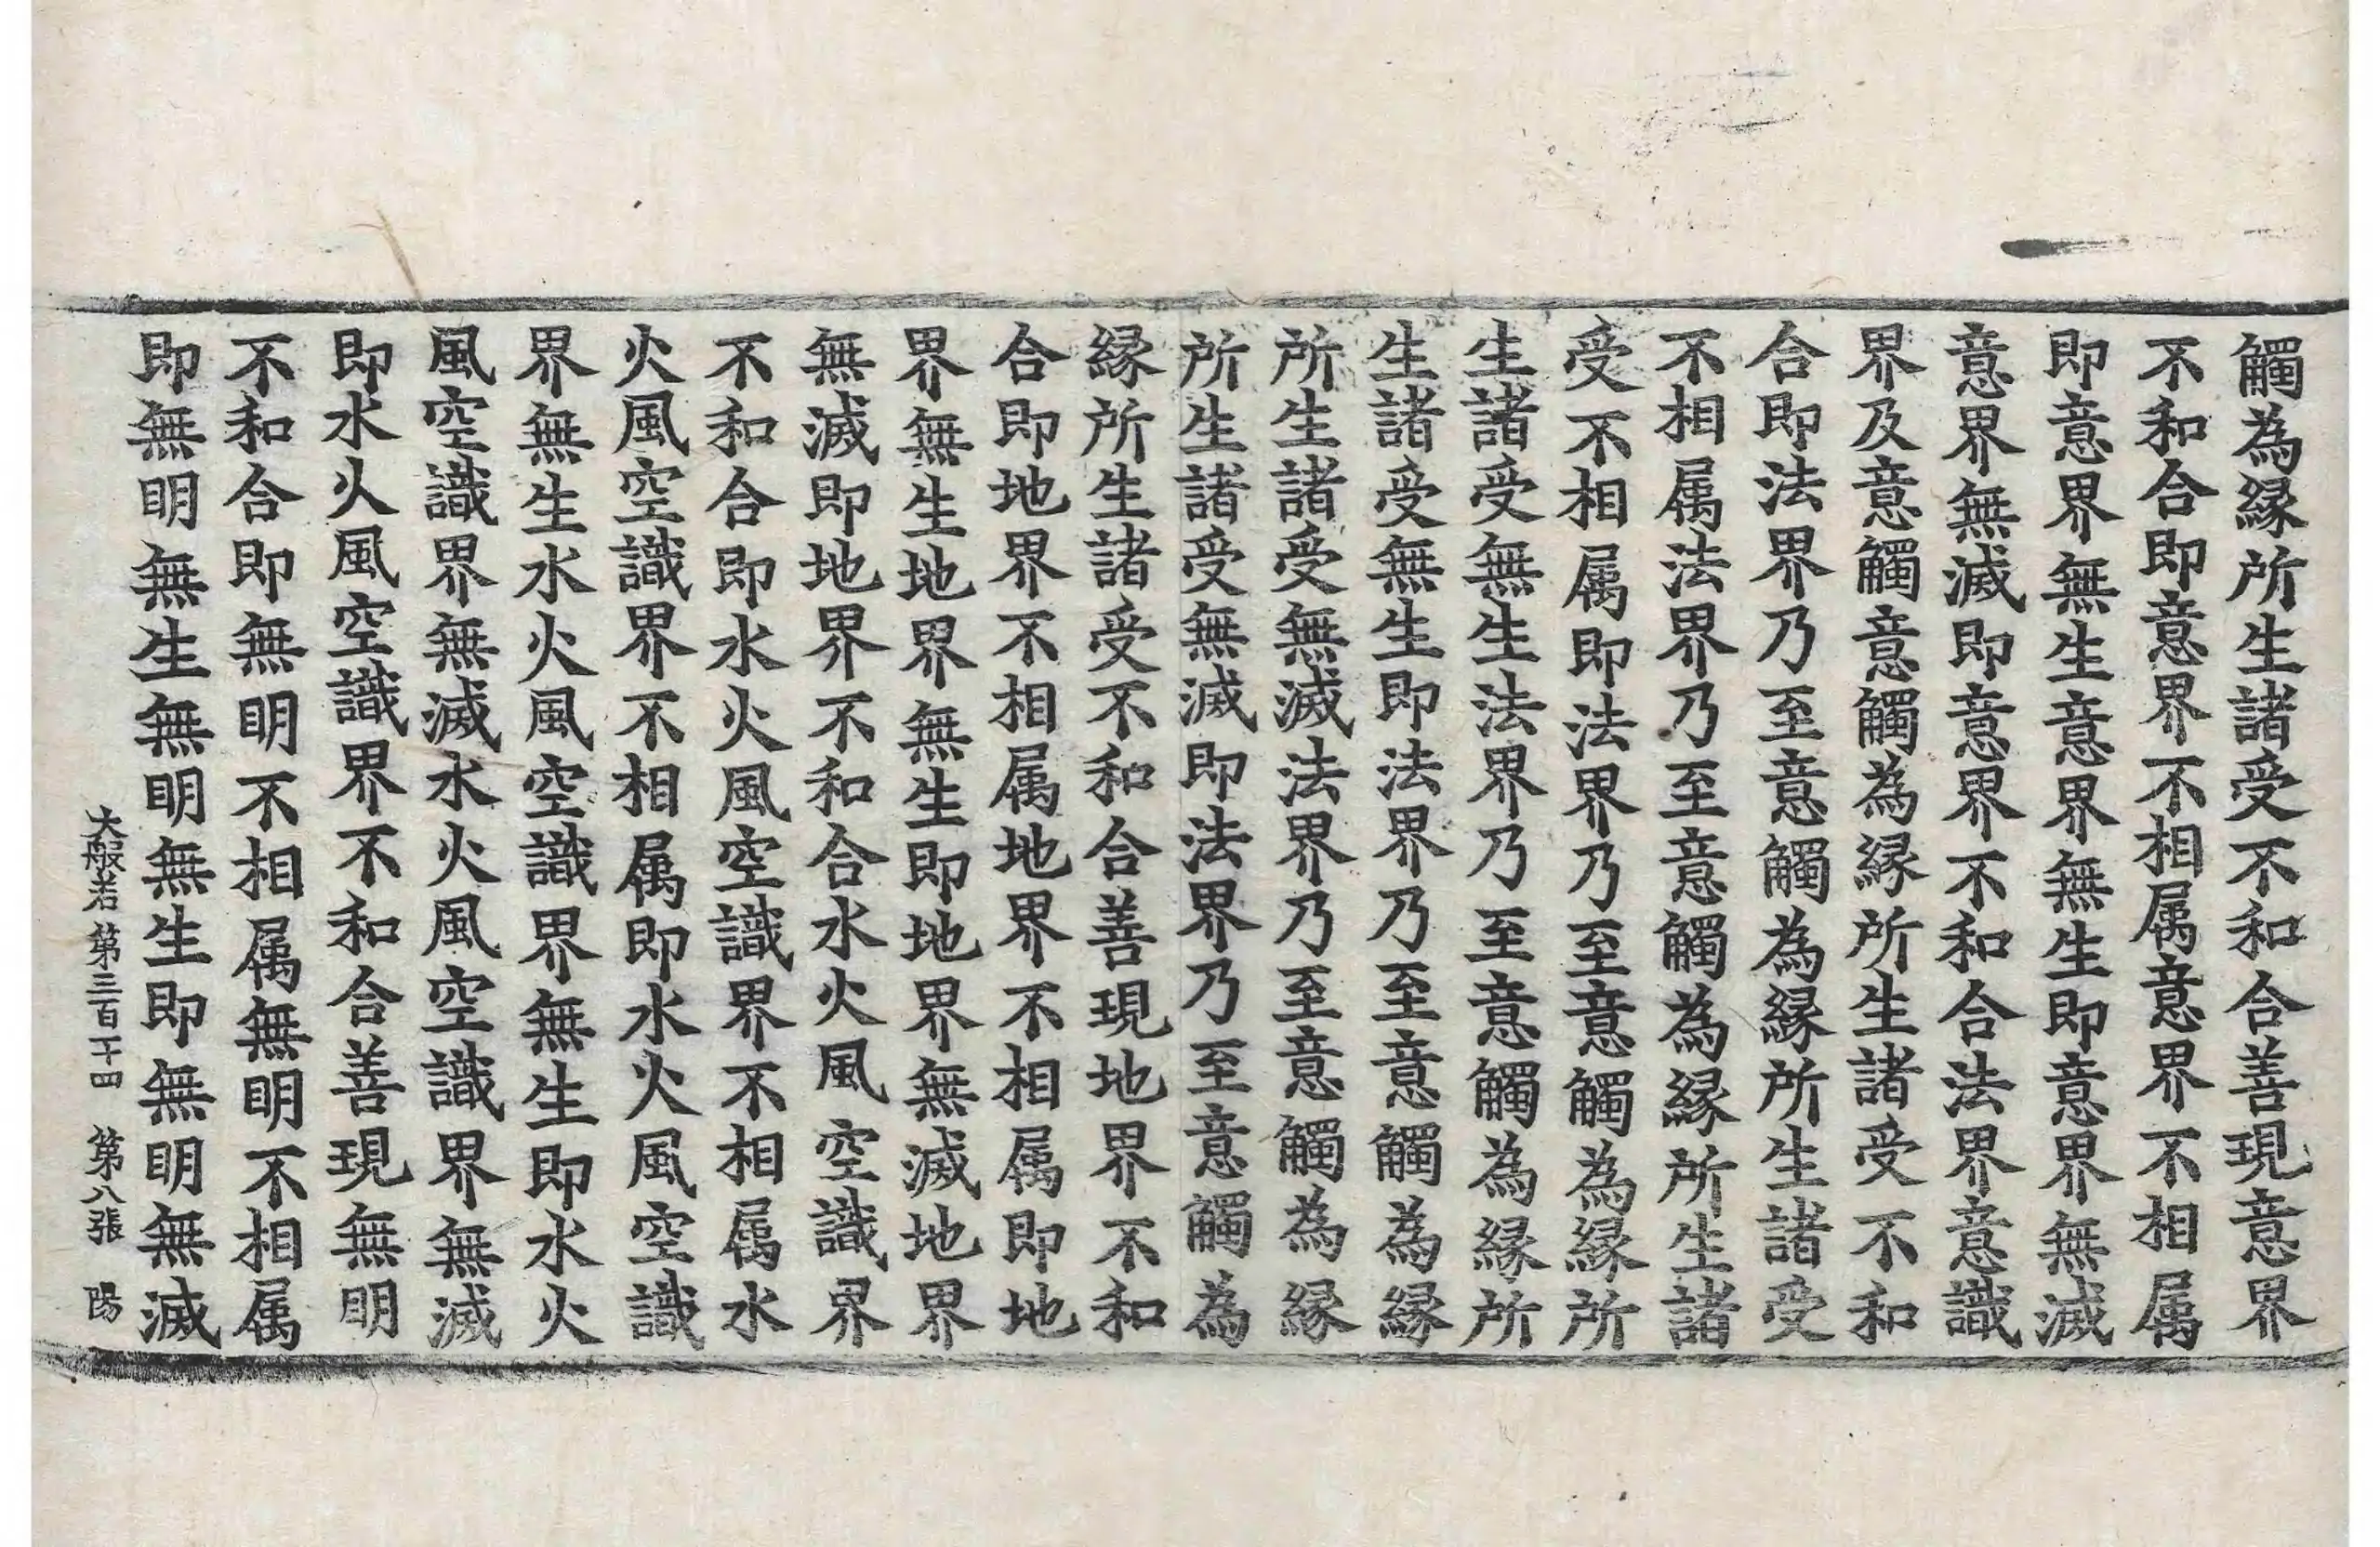 觸為縁所生諸受不和合善現意界
不和合即意界不相属意界不相属
即意界無生意界無生即意界無滅
意界無滅即意界不和合法界意識
界及意觸意觸為縁所生諸受不和
合即法界乃至意觸為縁所生諸受
不相属法界乃至意觸為縁所生諸
受不相属即法界乃至意觸為縁所
生諸受無生法界乃至意觸為縁所
生諸受無生即法界乃至意觸為縁
所生諸受無滅法界乃至意觸為縁
所生諸受無滅即法界乃至意觸為
縁所生諸受不和合善現地界不和
合即地界不相属地界不相属即地
界無生地界無生即地界無滅地界
無滅即地界不和合水火風空識界
不和合即水火風空識界不相属水
火風空識界不相属即水火風空識
界無生水火風空識界無生即水火
風空識界無滅水火風空識界無滅
即水火風空識界不和合善現無明
不和合即無明不相属無明不相属
即無明無生無明無生即無明無滅
大般若第三百一十四 第八張 陽